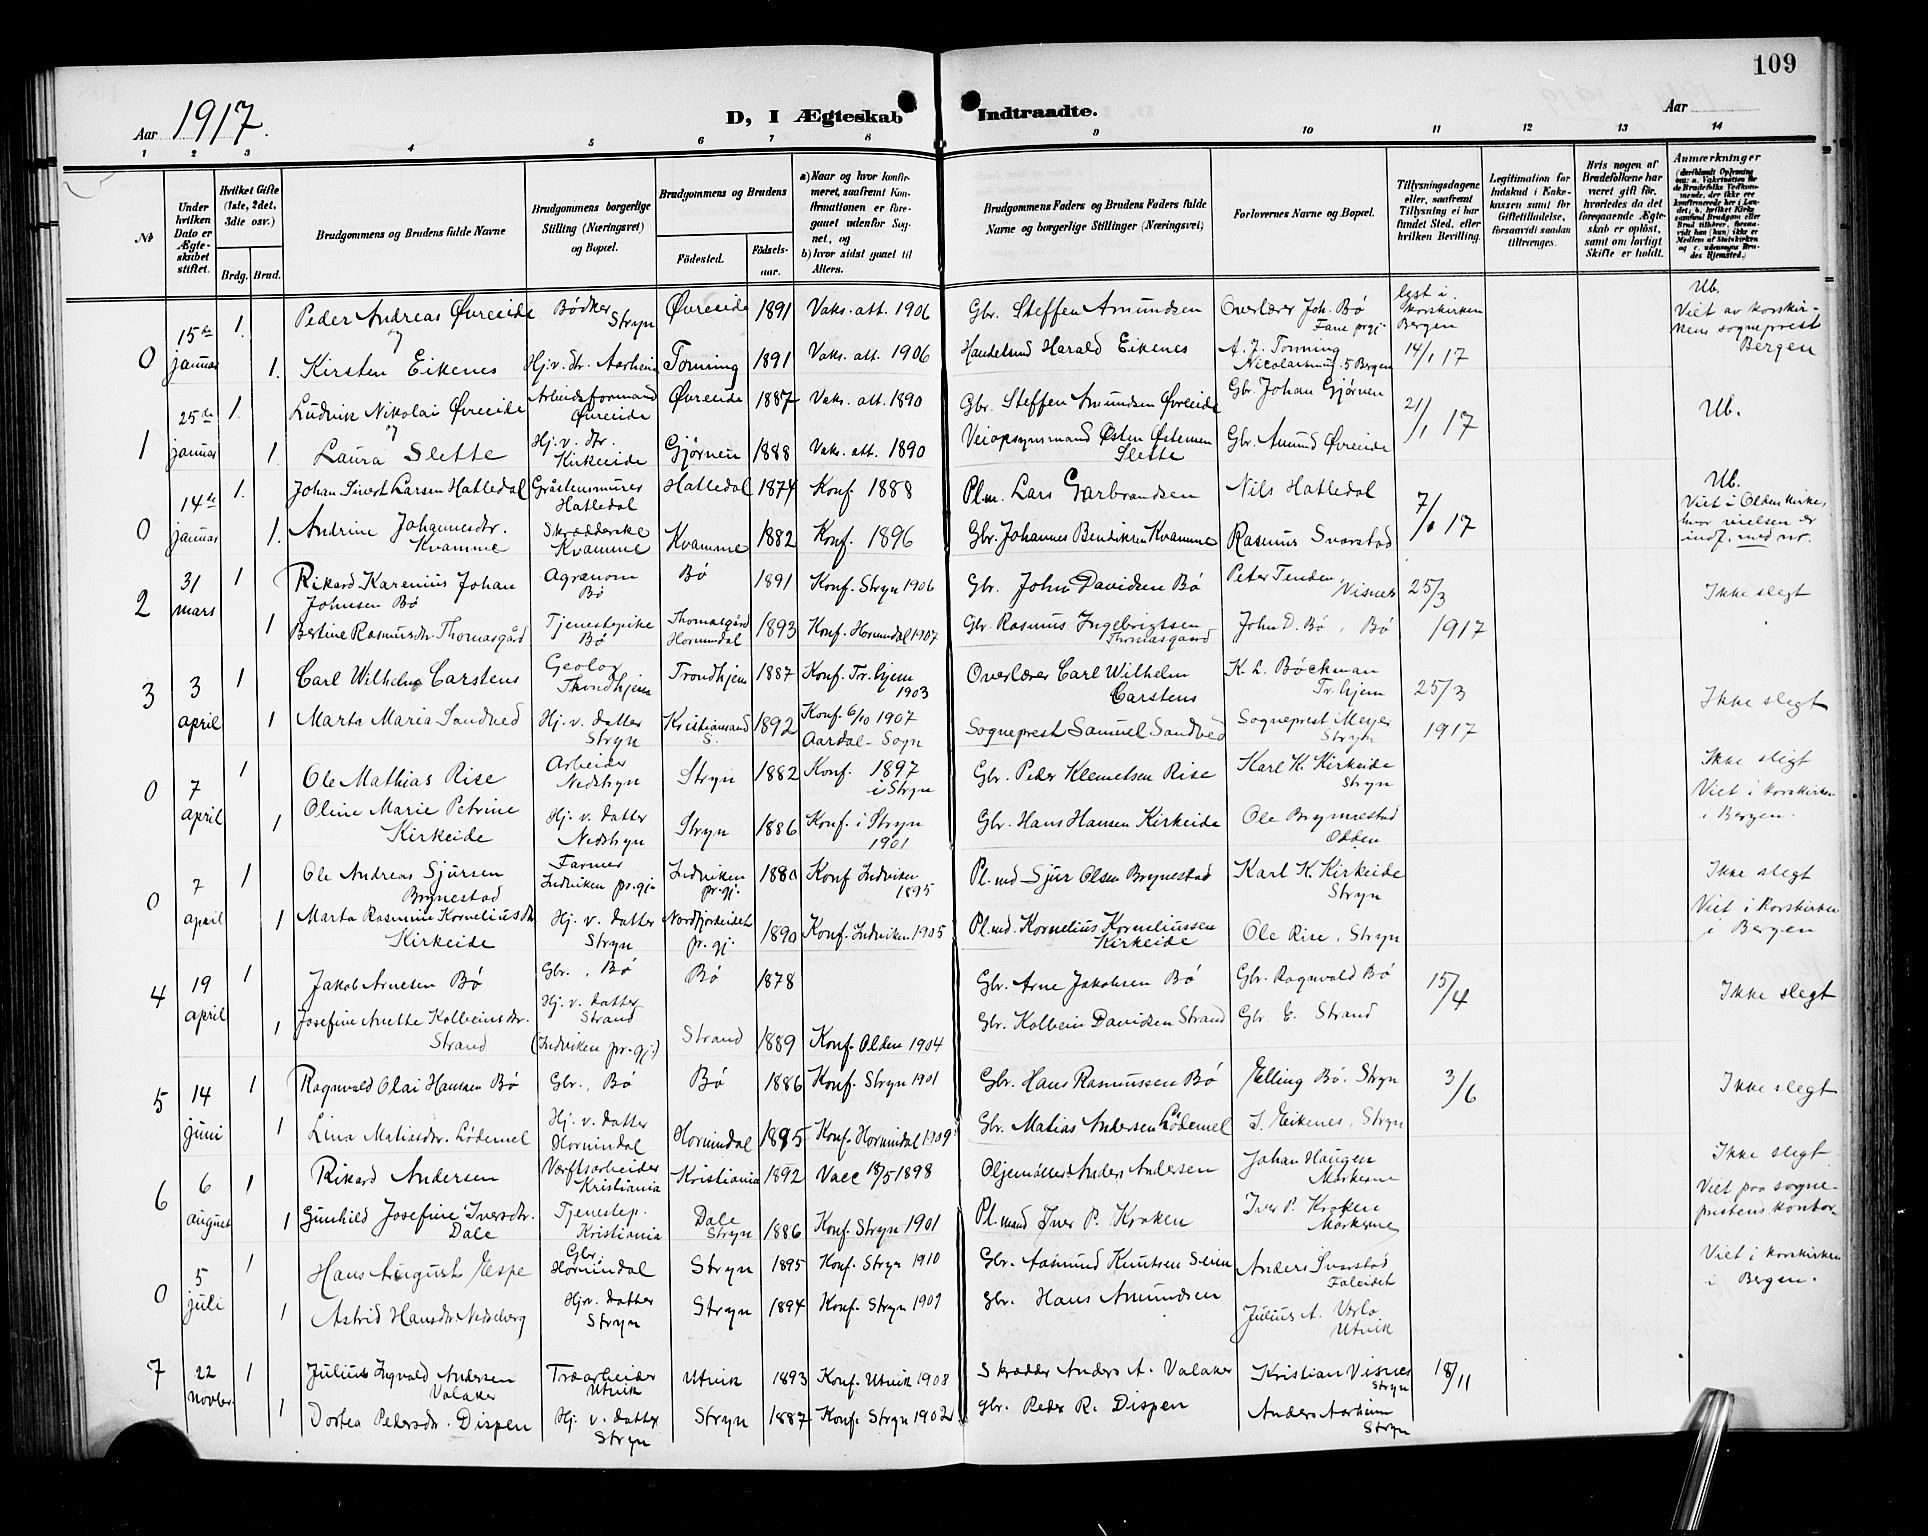 109
Aar 1917.
D, I Ægteskab Indtraadte.
Aar
1 2 3 4 5 6 7 8 9 10 11 12 13 14
No
Under hvilken Dato er Ægteskabet stiftet.
Hvilket Gifte (1ste, 2det, 3die osv.)
Brdg. Brud.
Brudgommens og Brudens fulde Navne
Brudgommens borgerlige Stilling (Næringsvei) og Bopæl.
Brudgommens og Brudens
Fødested. Fødselsaar.
a) Naar og hvor konfirmeret, saafremt Konfirmationen er foregaaet udenfor Sognet, og
b) hvor sidst gaaet til Alters.
Brudgommens Faders og Brudens Faders fulde Navne og borgerlige Stillinger (Næringsvei)
Forlovernes Navne og Bopæl.
Tillysningsdagene eller, saafremt Tillysning ei har fundet Sted, efter hvilken Bevilling.
Legitimation for Indskud i Enkekassen samt for Giftetilladelse, forsaavidt saadan tiltrænges.
Hvis nogen af Brudefolkene har været gift før, hvorledes da det foregaaende Ægteskab er opløst, samt om lovligt Skifte er holdt.
Anmærkninger
0 15de januar 1. Peder Andreas Øvreeide Bødker Stryn Øvreeide 1891 Vaks. att. 1906 Gbr. Steffen Amundsen Overlærer Joh. Bø Fane prgj. lyst i Korskirken Bergen 14/1 17 Ub. Viet av Korskirkens sogneprest Bergen
og
1. Kirsten Eikenes Hj.v. dtr. Aarheim Tonning 1891 Vaks. att. 1906 Handelsmd Harald Eikenes A. J. Tonning Nicolaismug. 5 Bergen
1 25de januar 1. Ludvik Nikolai Øvreeide Arbeidsformand Øvreeide Øvreeide 1887 Vaks. att. 1890 Gbr. Steffen Amundsen Øvreeide Gbr. Johan Gjørven 21/1 17 Ub.
og
1. Laura Slette Hj. v. dtr. Kirkeeide Gjørven 1888 Vaks. att. 1890 Veiopsynsmand Østen Østensen Slette Gbr. Amund Øvreeide
0 14de januar 1. Johan Sivert Larsen Hatledal Gråstensmurer Hatledal Hatledal 1874 Konf. 1888 Plm. Lars Garbrandsen Nils Hatledal 7/1 17 Ub. Viet i Olden kirke, hvor vielsen er indf. med nr.
1. Andrine Johannesdtr. Kvamme Skrædderske Kvamme Kvamme 1882 Konf. 1896 Gbr. Johannes Bendiksen Kvamme Rasmus Svarstad
2 31 mars 1 Rikard Karenius Johan Johnsen Bø Agronom Bø Bø 1891 Konf. Stryn 1906 Gbr. John Davidsen Bø Peter Tenden, Visnes 25/3 1917 Ikke slegt
1 Bertine Rasmusdtr. Thomasgård Tjenestepike Bø Thomasgård Hornindal 1893 Konf. Hornindal 1907 Gbr. Rasmus Ingebrigtsen Thomasgaard John D. Bø, Bø
3 3 april 1 Carl Wilhelm Carstens Geolog Trondhjem Trondhjem 1887 Konf. Tr.hjem 1903 Overlærer Carl Wilhelm Carstens K. L. Bøckman Tr.hjem 25/3 1917 Ikke slegt
1 Marta Maria Sandved Hj. v. datter Stryn Kristiansand S. 1892 Konf. 6/10 1907 Aardal - Sogn Sogneprest Samuel Sandved Sogneprest Meyer Stryn
0 7 april 1 Ole Mathias Rise Arbeider Nedstryn Stryn 1882 Konf. 1897 i Stryn Gbr. Peder Klemetsen Rise Karl H. Kirkeide Stryn Ikke slegt Viet i Korskirken i Bergen.
1 Oline Marie Petrine Kirkeide Hj. v. datter Nedstryn Stryn 1886 Konf. i Stryn 1901 Gbr. Hans Hansen Kirkeide Ole Brynestad Olden
0 7 april 1 Ole Andreas Sjursen Brynestad Farmer Indviken pr.gj. Indviken pr.gj. 1880 Konf Indviken 1895 Pl.md Sjur Olsen Brynestad Karl H. Kirkeide Stryn Ikke slegt Viet i Korskirken i Bergen
1 Marta Rasmine Korneliusdtr. Kirkeide Hj. v. datter Stryn Nordfjordeidet pr. gj. 1890 Konf. Indviken 1905 Pl.md. Kornelius Korneliussen Kirkeide Ole Rise, Stryn
4 19 april 1 Jakob Arnesen Bø Gbr., Bø Bø 1878 Gbr. Arne Jakobsen Bø Gbr. Ragnvald Bø 15/4 Ikke slegt
1 Josefine Anette Kolbeinsdtr. Strand Hj. v. datter Strand (Indviken pr. gj.) Strand 1889 Konf. Olden 1904 Gbr. Kolbein Davidsen Strand Gbr. E. Strand
5 14 juni 1 Ragnvald Olai Hansen Bø Gbr., Bø Bø 1886 Konf. Stryn 1901 Gbr. Hans Rasmussen Bø Elling Bø, Stryn 3/6 Ikke slegt
1 Lina Matiasdtr. Lødemel Hj. v. datter Hornindal Hornindal 1895 Konf. Hornindal 1909 Gbr. Matias Andersen Lødemel I. Eikenes, Stryn
6 6 august 1 Rikard Andersen Værftsarbeider Kristiania Kristiania 1892 Vacc 18/5 1898 Oljemøller Anders Andersen Johan Haugen Markerne Ikke slegt Viet paa sogneprestens kontor
1 Gunhild Josefine Iversdtr. Dale Tjenestep. Kristiania Dale Stryn 1886 Konf. Stryn 1901 Pl.mand Iver P. Kroken Iver P. Kroken Markerne
0 5 juli 1 Hans August Espe Gbr. Hornindal Stryn 1895 Konf. Stryn 1910 Gbr. Aasmund Knutsen Seim Anders Svarstad Faleidet Viet i Korskirken i Bergen.
1 Astrid Hansdtr. Nedreberg Hj.v. datter Stryn Stryn 1894 Konf. Stryn 1909 Gbr. Hans Amundsen Julius A. Verlo Utvik
7 22 novber. 1 Julius Ingvald Andersen Valaker Træarbeider Utvik Utvik 1893 Konf. Utvik 1908 Skrædder Anders A. Valaker Kristian Visnes Stryn 18/11
1 Dortea Pedersdtr. Dispen Hj. v. datter Stryn Stryn 1887 Konf. Stryn 1902 Gbr. Peder R. Dispen Anders Aarheim Stryn